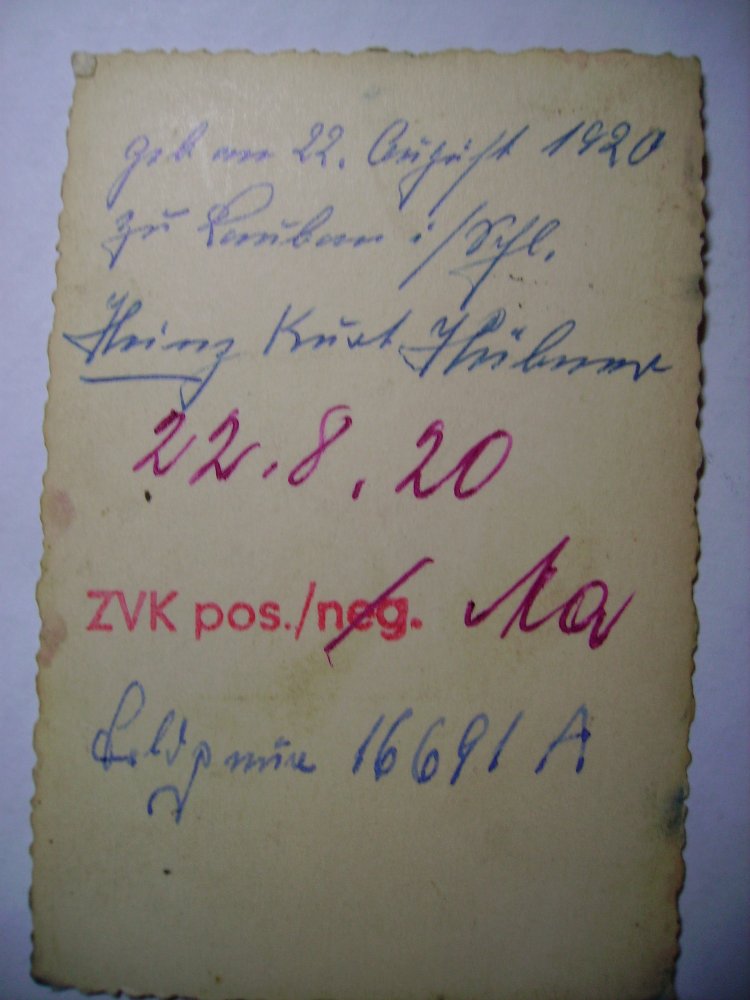 geb am 22. August 1920
zu Lauban i/Schl.
Heinz Kurt Hübner
22.8.20
ZVK pos./neg. Aa
Feldpnur 16691 A